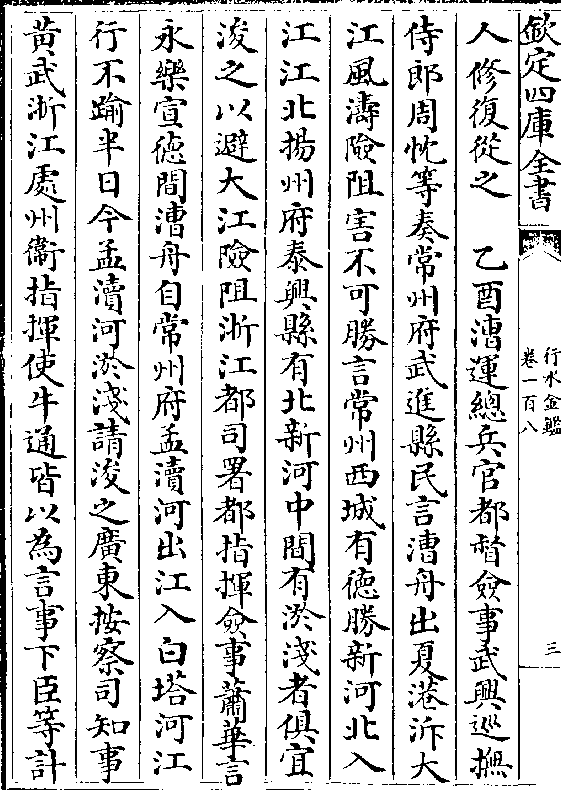 欽定四庫全書
行水金鑑
卷一百八
三
人修復從之　乙酉漕運總兵官都督僉事武興巡撫
侍郎周忱等奏常州府武進縣民言漕舟出夏港泝大
江風濤險阻害不可勝言常州西城有德勝新河北入
江江北揚州府泰興縣有北新河中間有淤淺者俱宜
浚之以避大江險阻浙江都司署都指揮僉事蕭華言
永樂宣德間漕舟自常州府孟瀆河出江入白塔河江
行不踰半日今孟瀆河淤淺請浚之廣東按察司知事
黃武浙江處州衞指揮使牛通皆以為言事下臣等計